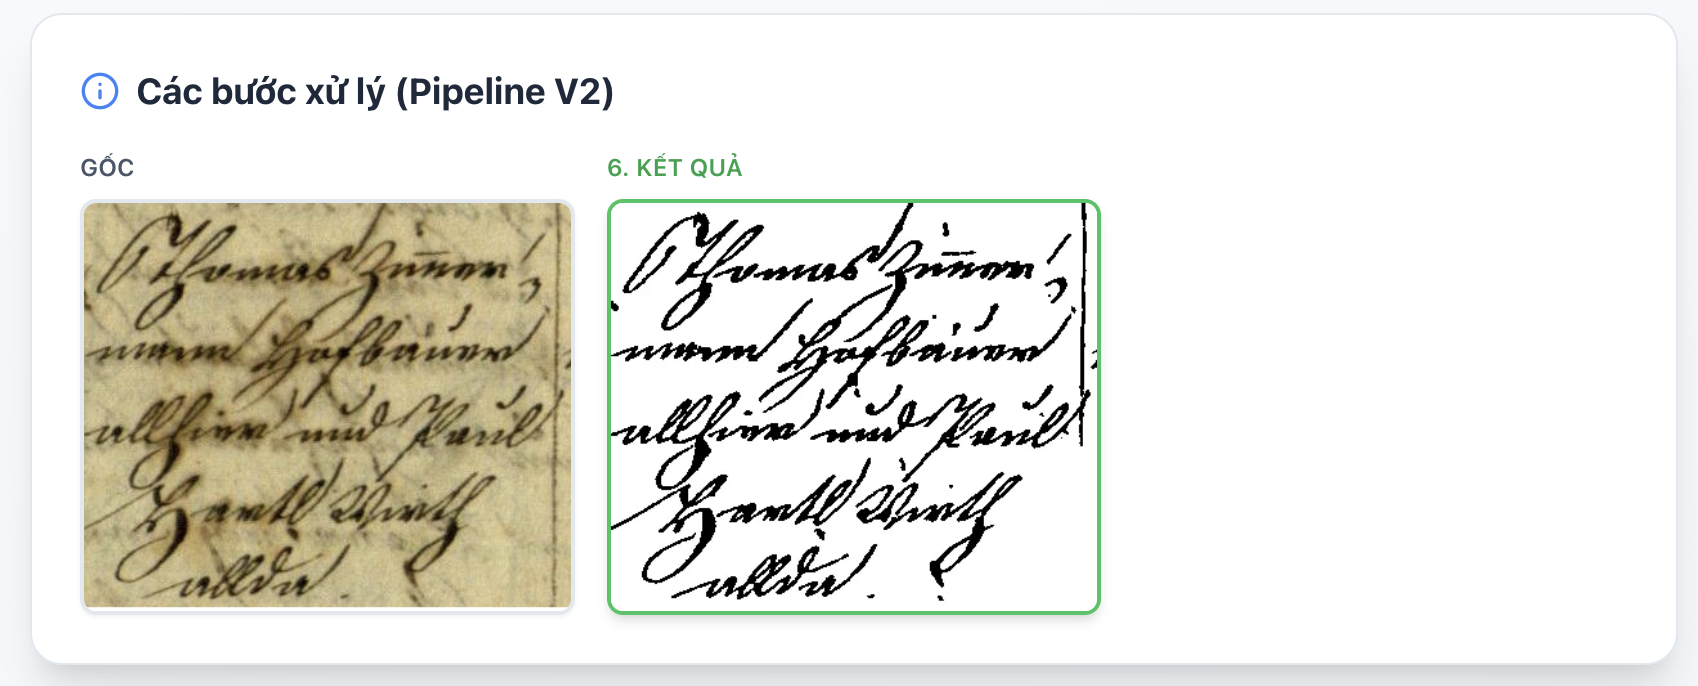 Các bước xử lý (Pipeline V2)
GỐC
Thomas Zim̅er,
mann Hofbauer
allhier und Paul
Hartl Wirth
allda.
6. KẾT QUẢ
Thomas Zim̅er,
mann Hofbauer
allhier und Paul
Hartl Wirth
allda.